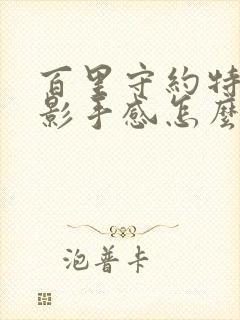 百里守約特
影手感怎麼
泡普卡